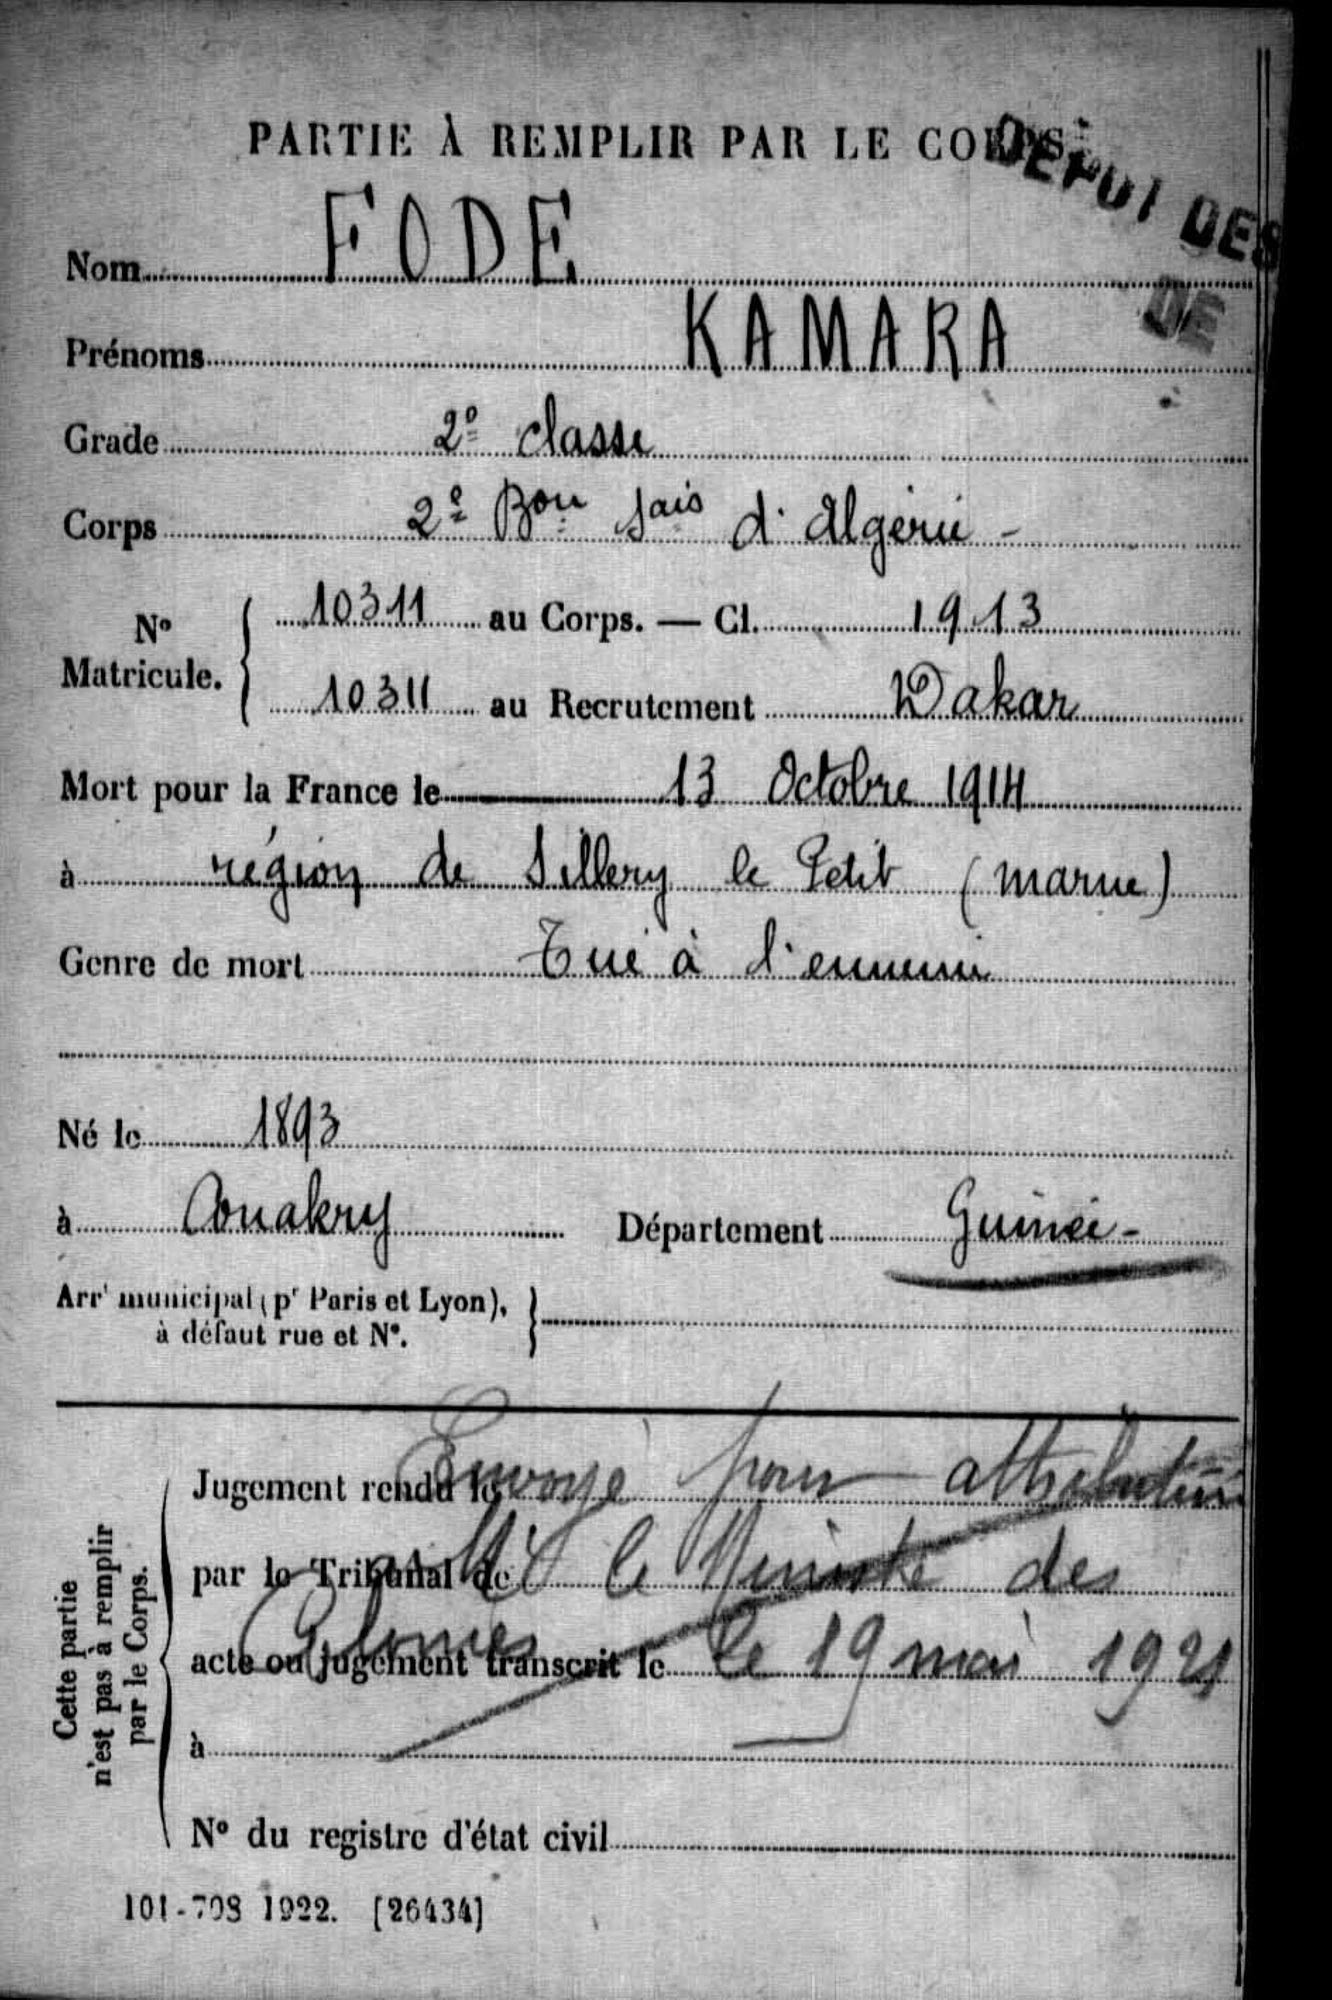 PARTIE À REMPLIR PAR LE CORPS
DEPOT DES
DE
Nom FODE
Prénoms KAMARA
Grade 2e classe
Corps 2e Bon sais d'Algérie -
No Matricule. { 10311 au Corps. — Cl. 1913
10311 au Recrutement Dakar
Mort pour la France le 13 Octobre 1914
à région de Sillery le Petit (Marne)
Genre de mort Tué à l'ennemi
Né le 1893
à Conakry Département Guinée -
Arrt municipal (pr Paris et Lyon), à défaut rue et No.
Envoyé pour attribution
Jugement rendu le
à Mr le Ministre des
par le Tribunal de
Colonies le 19 mai 1921
acte ou jugement transcrit le
à
No du registre d'état civil
Cette partie n'est pas à remplir par le Corps.
101-708 1922. [26434]